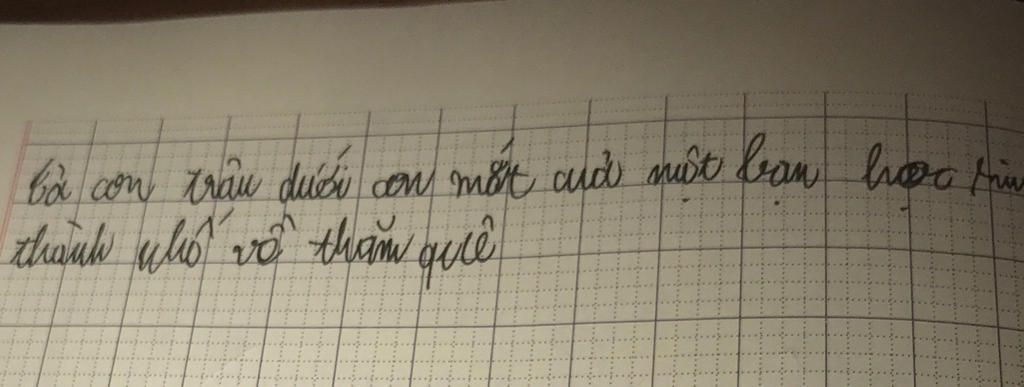 tả con trâu dưới con mắt cuả một bạn học sin
thành phố về thăm quê